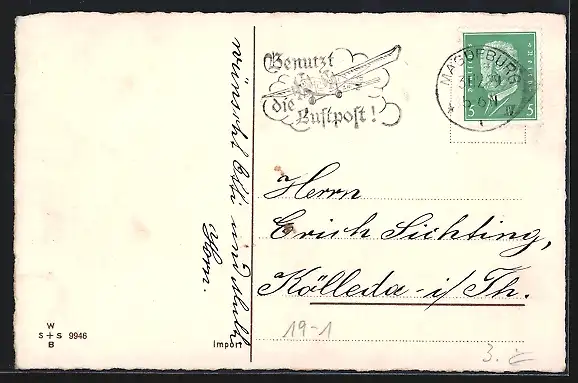 wünscht Essi und
Benutzt
die
Luftpost!
MAGDEBURG
5 5
Herrn
Erich Sichting,
Kölleda i/Th.
19-1
W
S + S 9946
B
Import
3.